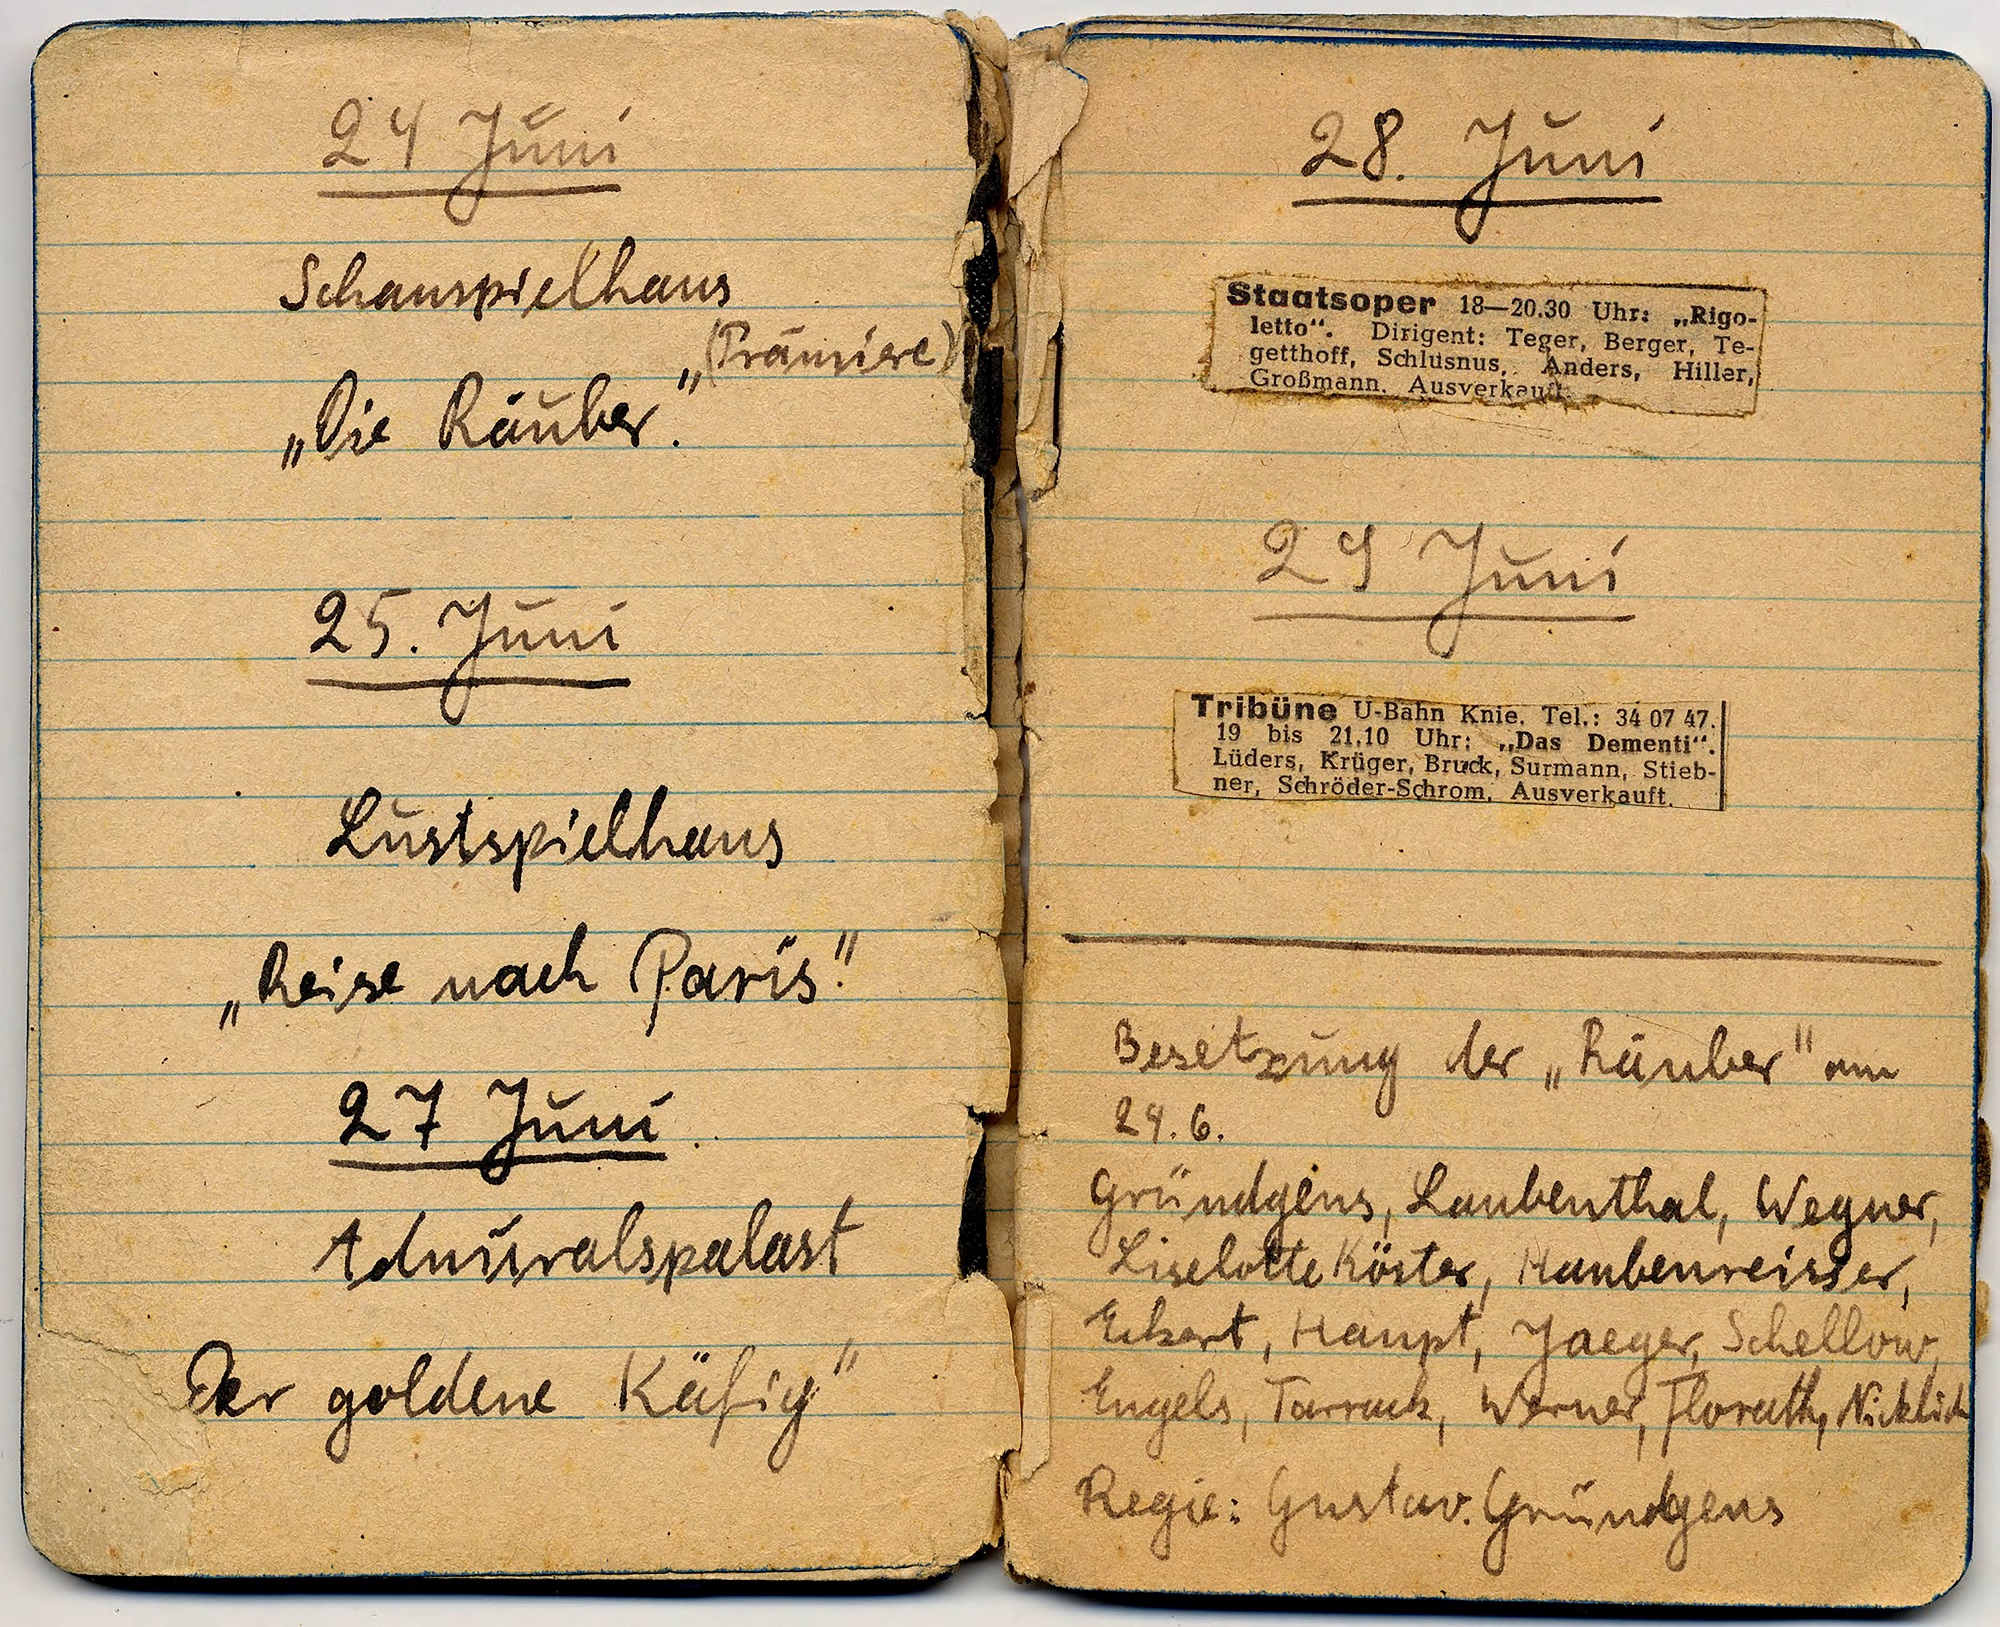 24 Juni
Schauspielhaus
(Prämiere)
„Die Räuber."
25. Juni
Lustspielhaus
„Reise nach Paris."
27 Juni
Admiralspalast
Der goldene Käfig"
28. Juni
Staatsoper 18—20.30 Uhr: „Rigo-
letto“. Dirigent: Teger, Berger, Te-
getthoff, Schlusnus, Anders, Hiller,
Großmann. Ausverkauft.
29 Juni
Tribüne U-Bahn Knie. Tel.: 34 07 47.
19 bis 21.10 Uhr: „Das Dementi“.
Lüders, Krüger, Bruck, Surmann, Stieb-
ner, Schröder-Schrom. Ausverkauft.
Besetzung der „Räuber" am
24. 6.
Gründgens, Laubenthal, Wegner,
Liselotte Köster, Haubenreisser,
Eckert, Haupt, Jaeger, Schellow,
Engels, Tarrach, Werner, Florath, Nicklisch
Regie: Gustav. Gründgens